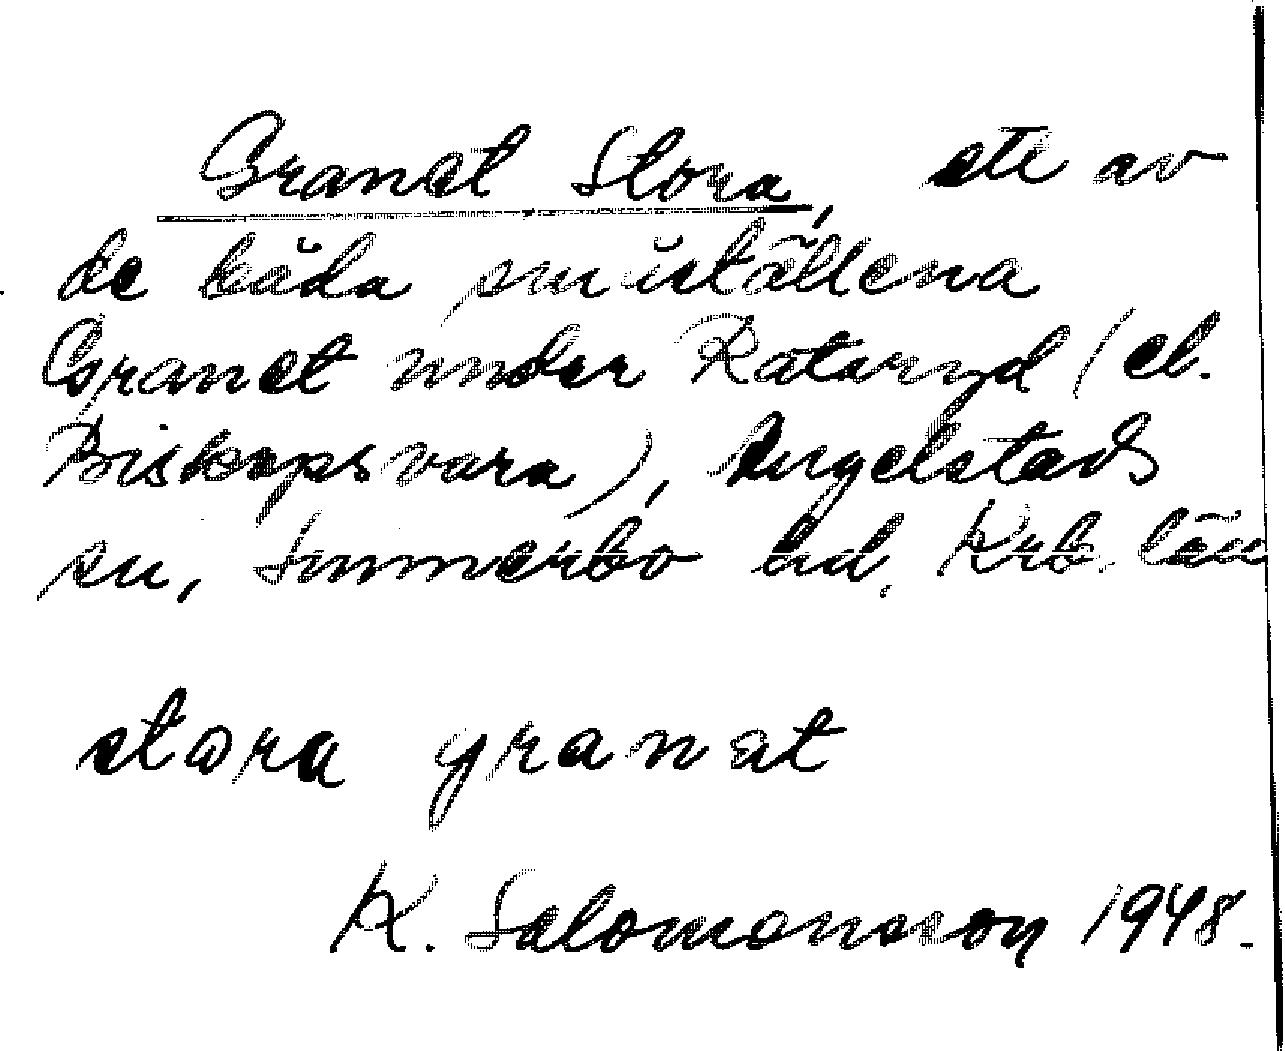 Granet Stora, ett av
de båda småställena
Granet under Rataryd (el.
Biskopsvara), Angelstads
sn, Sunnerbo hd, Krb. län
stora granat
K. Salomonsson 1948.